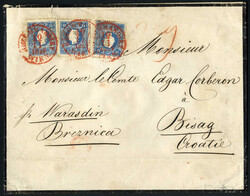 Monsieur
Monsieur le Comte Edgar Corberon
à
pr Warasdin
Breznica
Bisag
Croatie